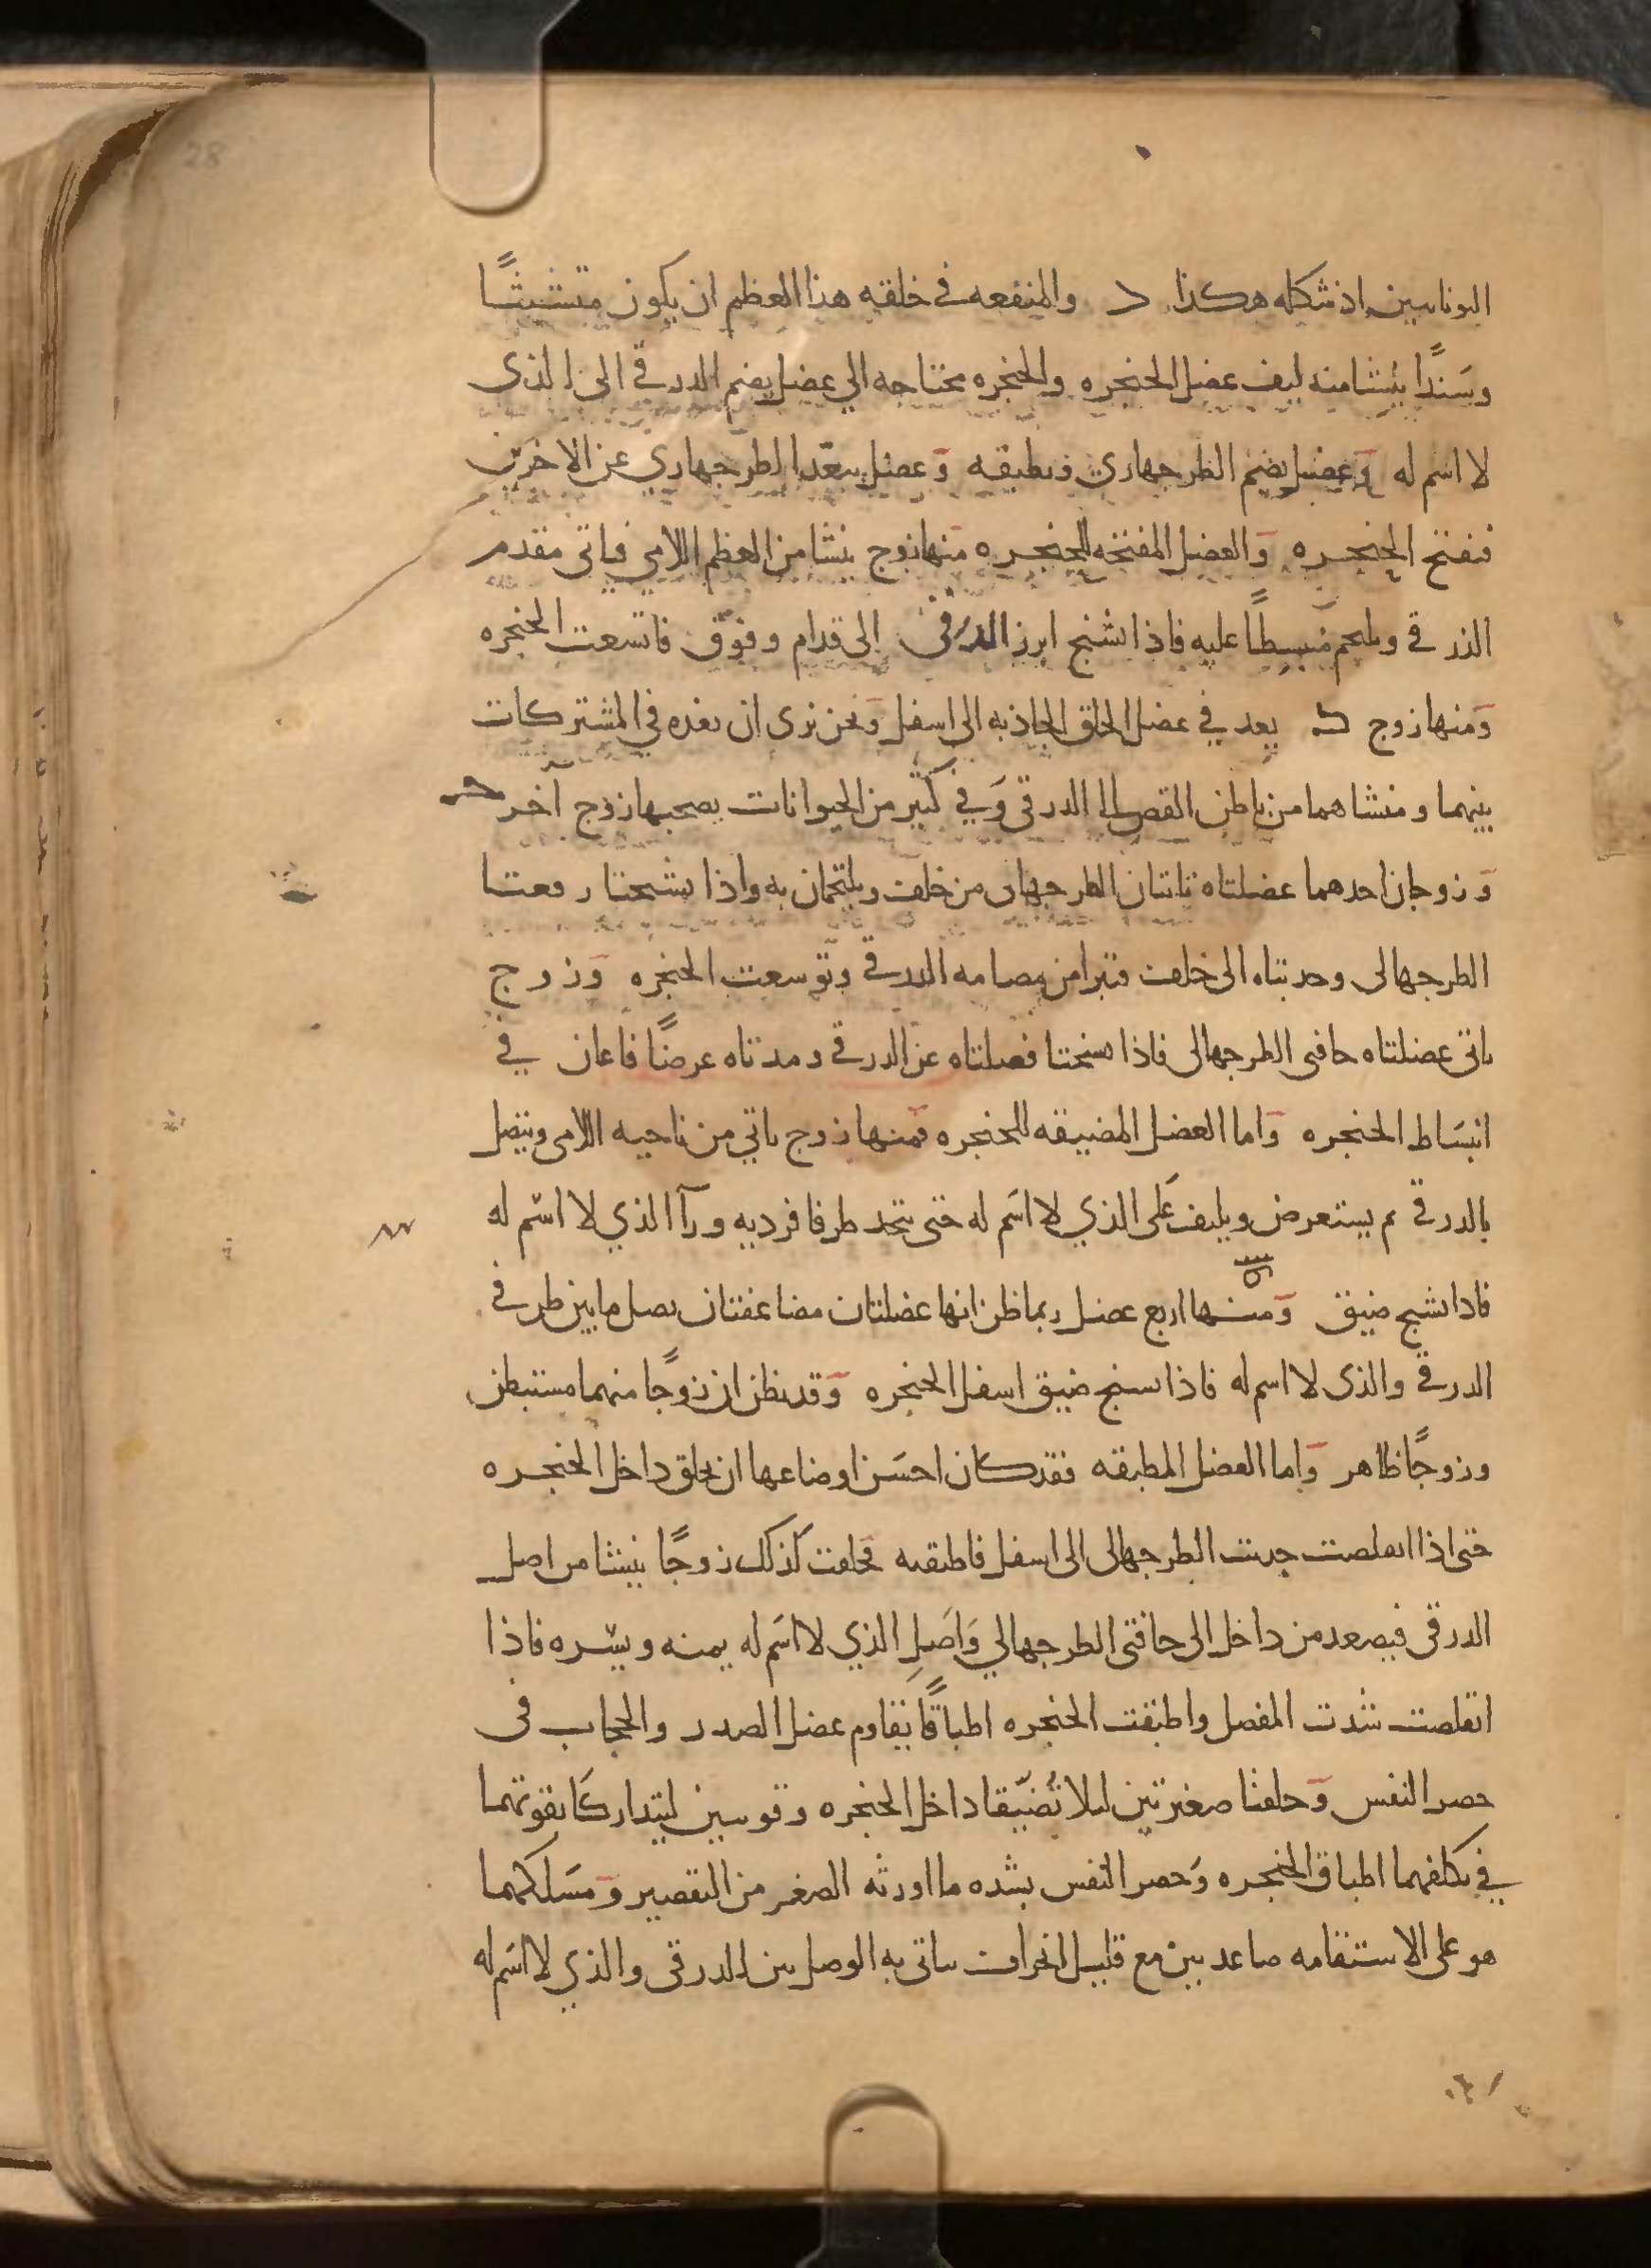 اليونانيين اذ شكله هكذا د والمنفعه في خلقه هذا العظم ان يكون متشبثًا
وسَندًا ينشا منه ليف عضل الحنجره والحنجره محتاجه الي عضل يضم الدرقي الى الذى
لا اسم له وَعضل يضم الطرجهاري ويطبقه وَعضل يبعّد الطرجهاري عن الاخرَين
فيفتح الحنجره وَالعضل المفتحه للحنجره منها زوج ينشا من العظم اللامي فياتى مقدم
الدرقي ويلتحم منبسطًا عليه فاذا تشنج ابرز الدرقى الى قدام وفوَق فاتسعت الحنجره
وَمنها زوج يعد في عضل الحلق الجاذبه الى اسفل وَنحن نرى ان نعده في المشتركات
بينهما ومنشاهما من باطن القص الى الدرقى وَفي كثير من الحيوانات يصحبها زوج اخر
وَزوجان احدهما عضلتاه تاتيان الطرجهارى من خلف ويلتحمان به واذا تشنجتا رفعتا
الطرجهالى وحدبتاه الى خلف فتبرا من مضامه الدرقي وتوسعت الحنجره وَزوج
ياتى عضلتاه حافتى الطرجهالى فاذا تشنجتا فصلتاه عن الدرقي ومدتاه عرضًا فاعان في
انبسَاط الحنجره وَاما العضل المضيقه للحنجره فمنها زوج ياتي من ناحيه اللامى ويتصل
بالدرقي ثم يستعرض ويلتف عَلى الذي لا اسَم له حتى يتحد طرفا فرديه ورآ الذي لا اسَم له
فاذا تشنج ضيق وَمنها اربع عضل ربما ظن انها عضلتان مضاعفتان تصل ما بين طرفي
الدرقي والذى لا اسم له فاذا تشنج ضيق اسفل الحنجره وَقد يظن ان زوجًا منهما مستبطن
وزوجًا ظاهر وَاما العضل المطبقه فقد كان احسَن اوضاعها ان تخلق داخل الحنجره
حتى اذا تقلصت جذبت الطرجهالى الى اسفل فاطبقته فخلقت كذلك زوجًا ينشا من اصل
الدرقى فيصعد من داخل الى حافتى الطرجهالي وَاصَل الذي لا اسَم له يمنه ويسَره فاذا
اتقلصت شدت المفصل واطبقت الحنجره اطباقًا يقاوم عضل الصدر والحجاب فى
حصر النفس وَخلقتا صغيرتين ليلا تُضيّقا داخل الحنجره وقوسين ليتداركا بقوتهما
في تكلفهما اطباق الحنجره وَحصر النفس بشده ما اورثه الصغر من التقصير وَمسَلكهما
هو على الاستقامه صاعدين مع قليل انحراف يتاتى به الوصل بين الدرقى والذي لا اسَم له
28